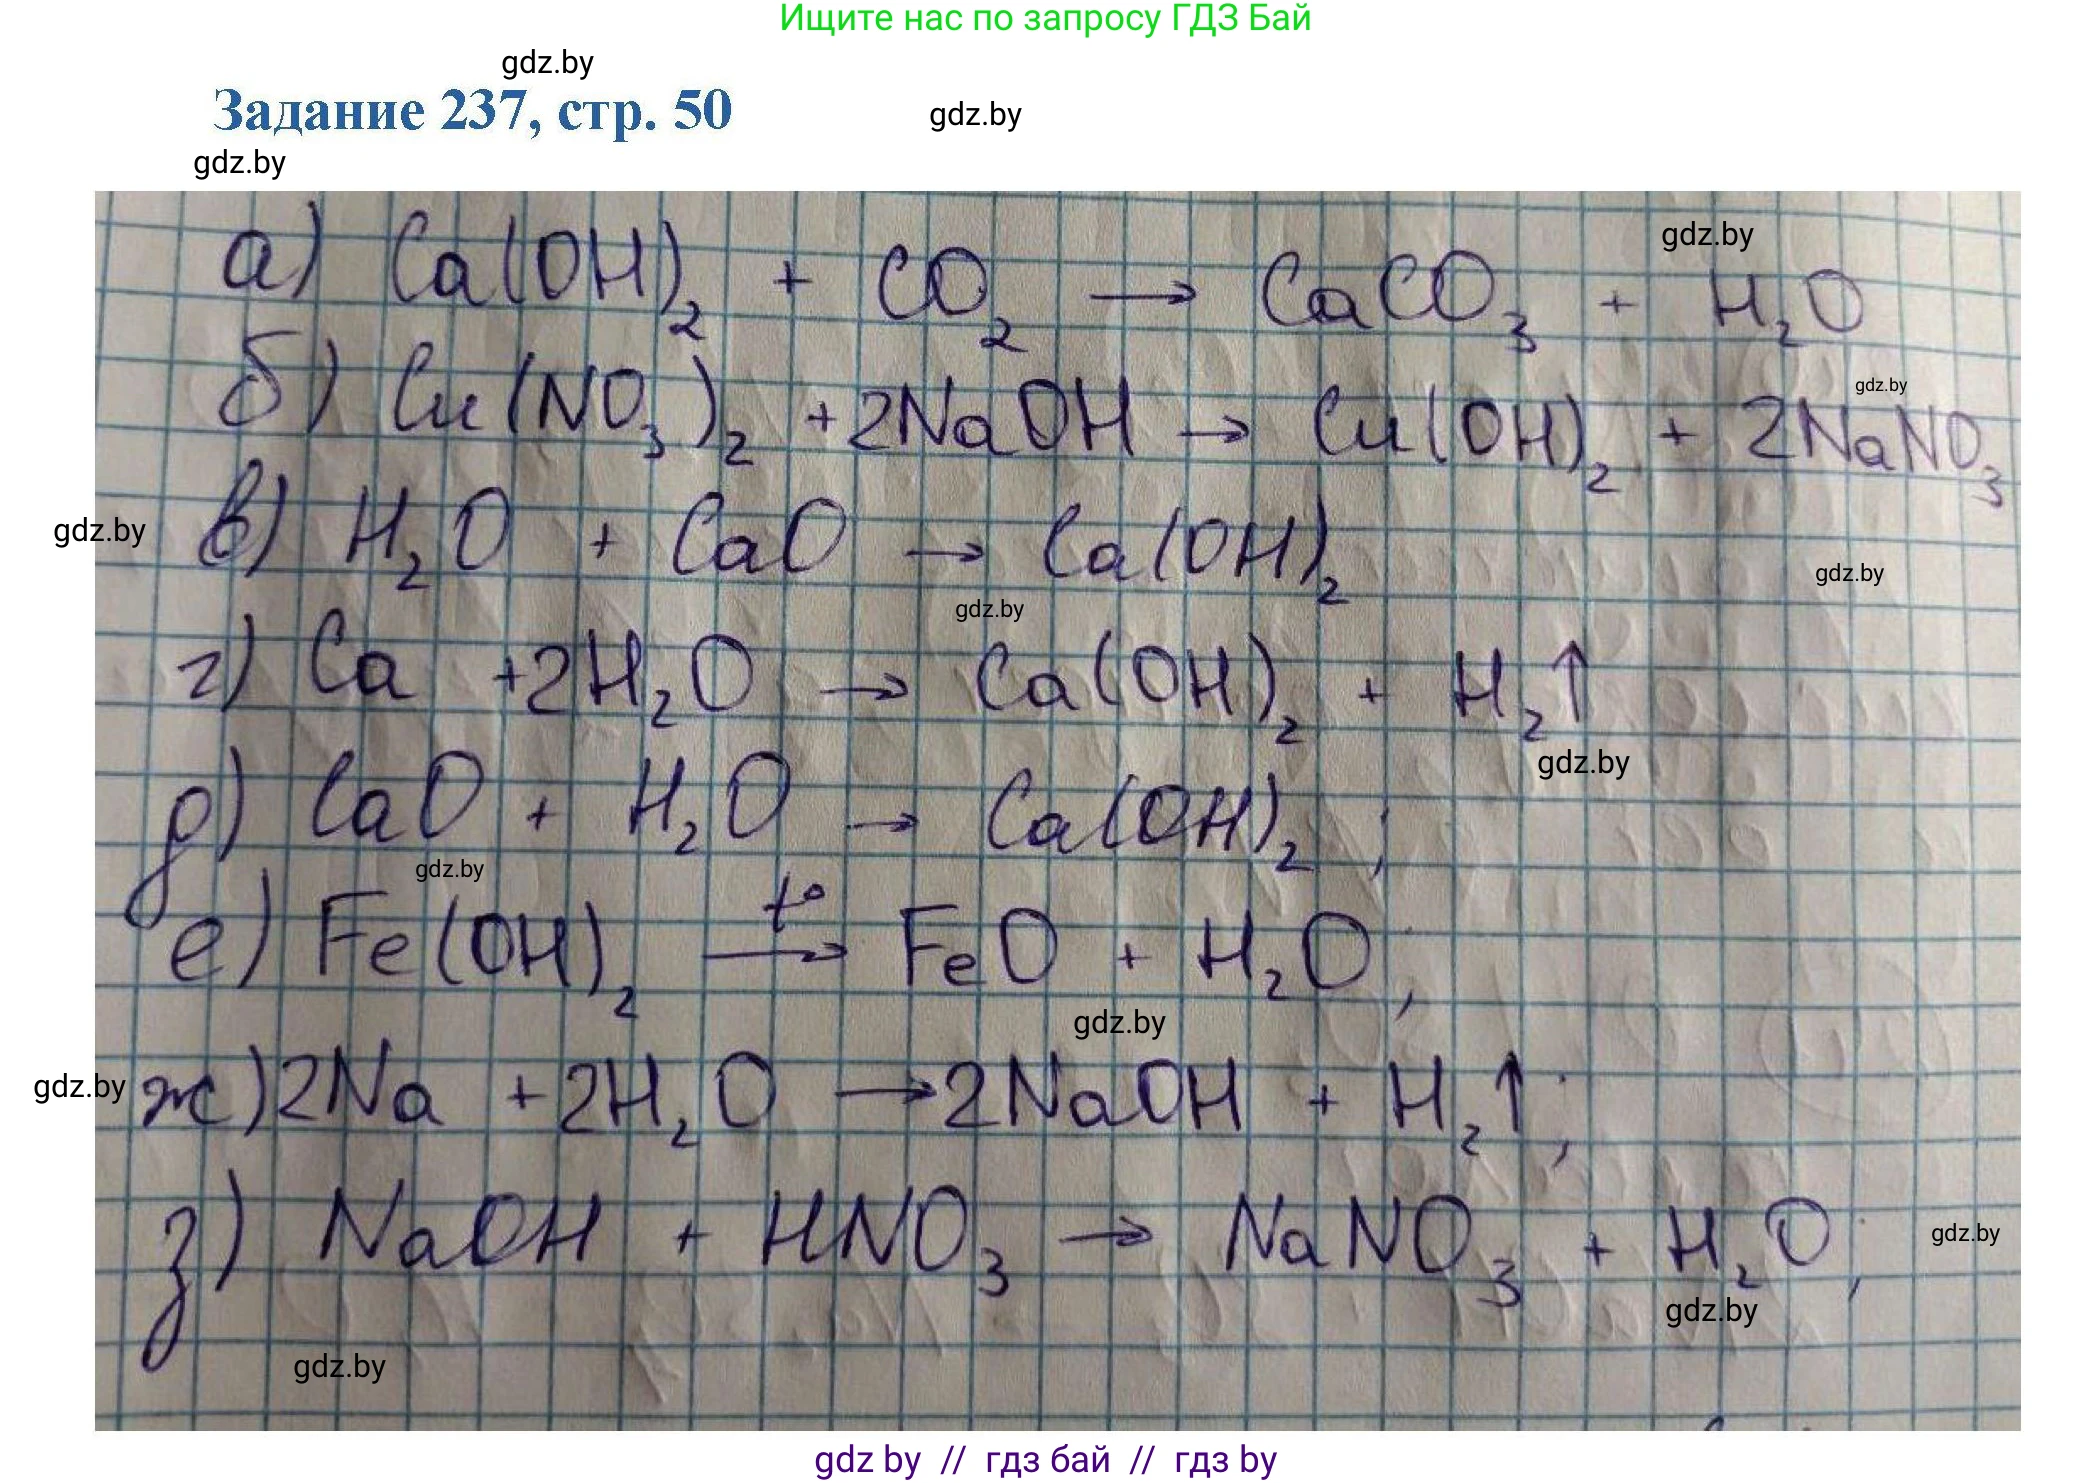 Ищите нас по запросу ГДЗ Бай
gdz.by
Задание 237, стр. 50
gdz.by
gdz.by
gdz.by
а) Ca(OH)₂ + CO₂ → CaCO₃ + H₂O
gdz.by
б) Cu(NO₃)₂ + 2NaOH → Cu(OH)₂ + 2NaNO₃
gdz.by
в) H₂O + CaO → Ca(OH)₂
gdz.by
gdz.by
г) Ca + 2H₂O → Ca(OH)₂ + H₂↑
gdz.by
д) CaO + H₂O → Ca(OH)₂ ;
gdz.by
е) Fe(OH)₂ t° → FeO + H₂O ;
gdz.by
gdz.by
ж) 2Na + 2H₂O → 2NaOH + H₂↑ ;
з) NaOH + HNO₃ → NaNO₃ + H₂O ;
gdz.by
gdz.by
gdz.by
gdz by // гдз бай // гдз by